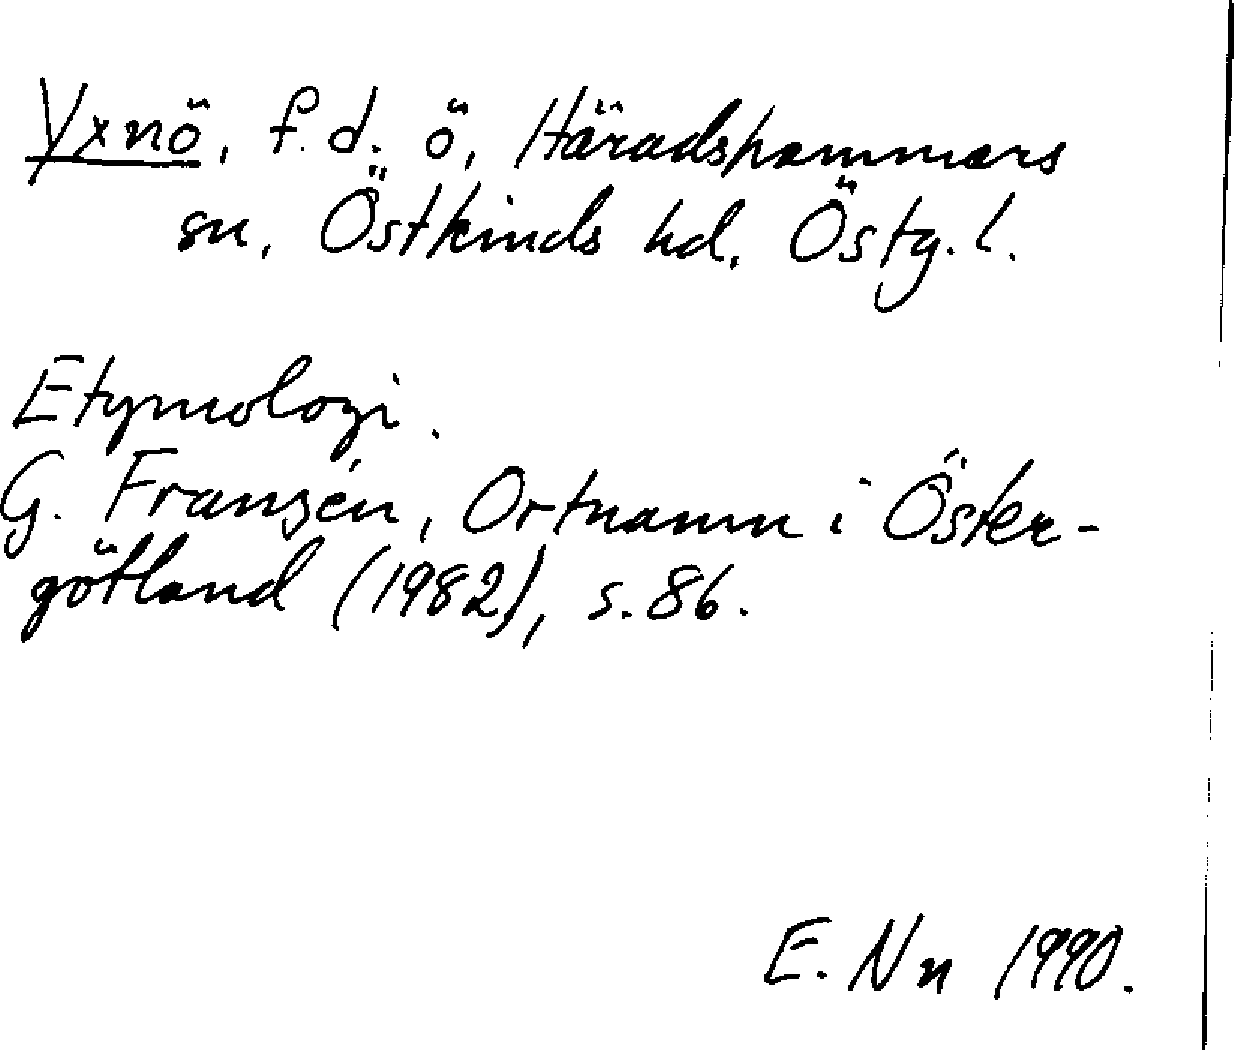 Yxnö, f.d. ö, Häradshammars
sn, Östkinds hd, Östg.l.
Etymologi.
G. Franzén, Ortnamn i Öster-
götland (1982), s. 86.
E. Nn 1990.